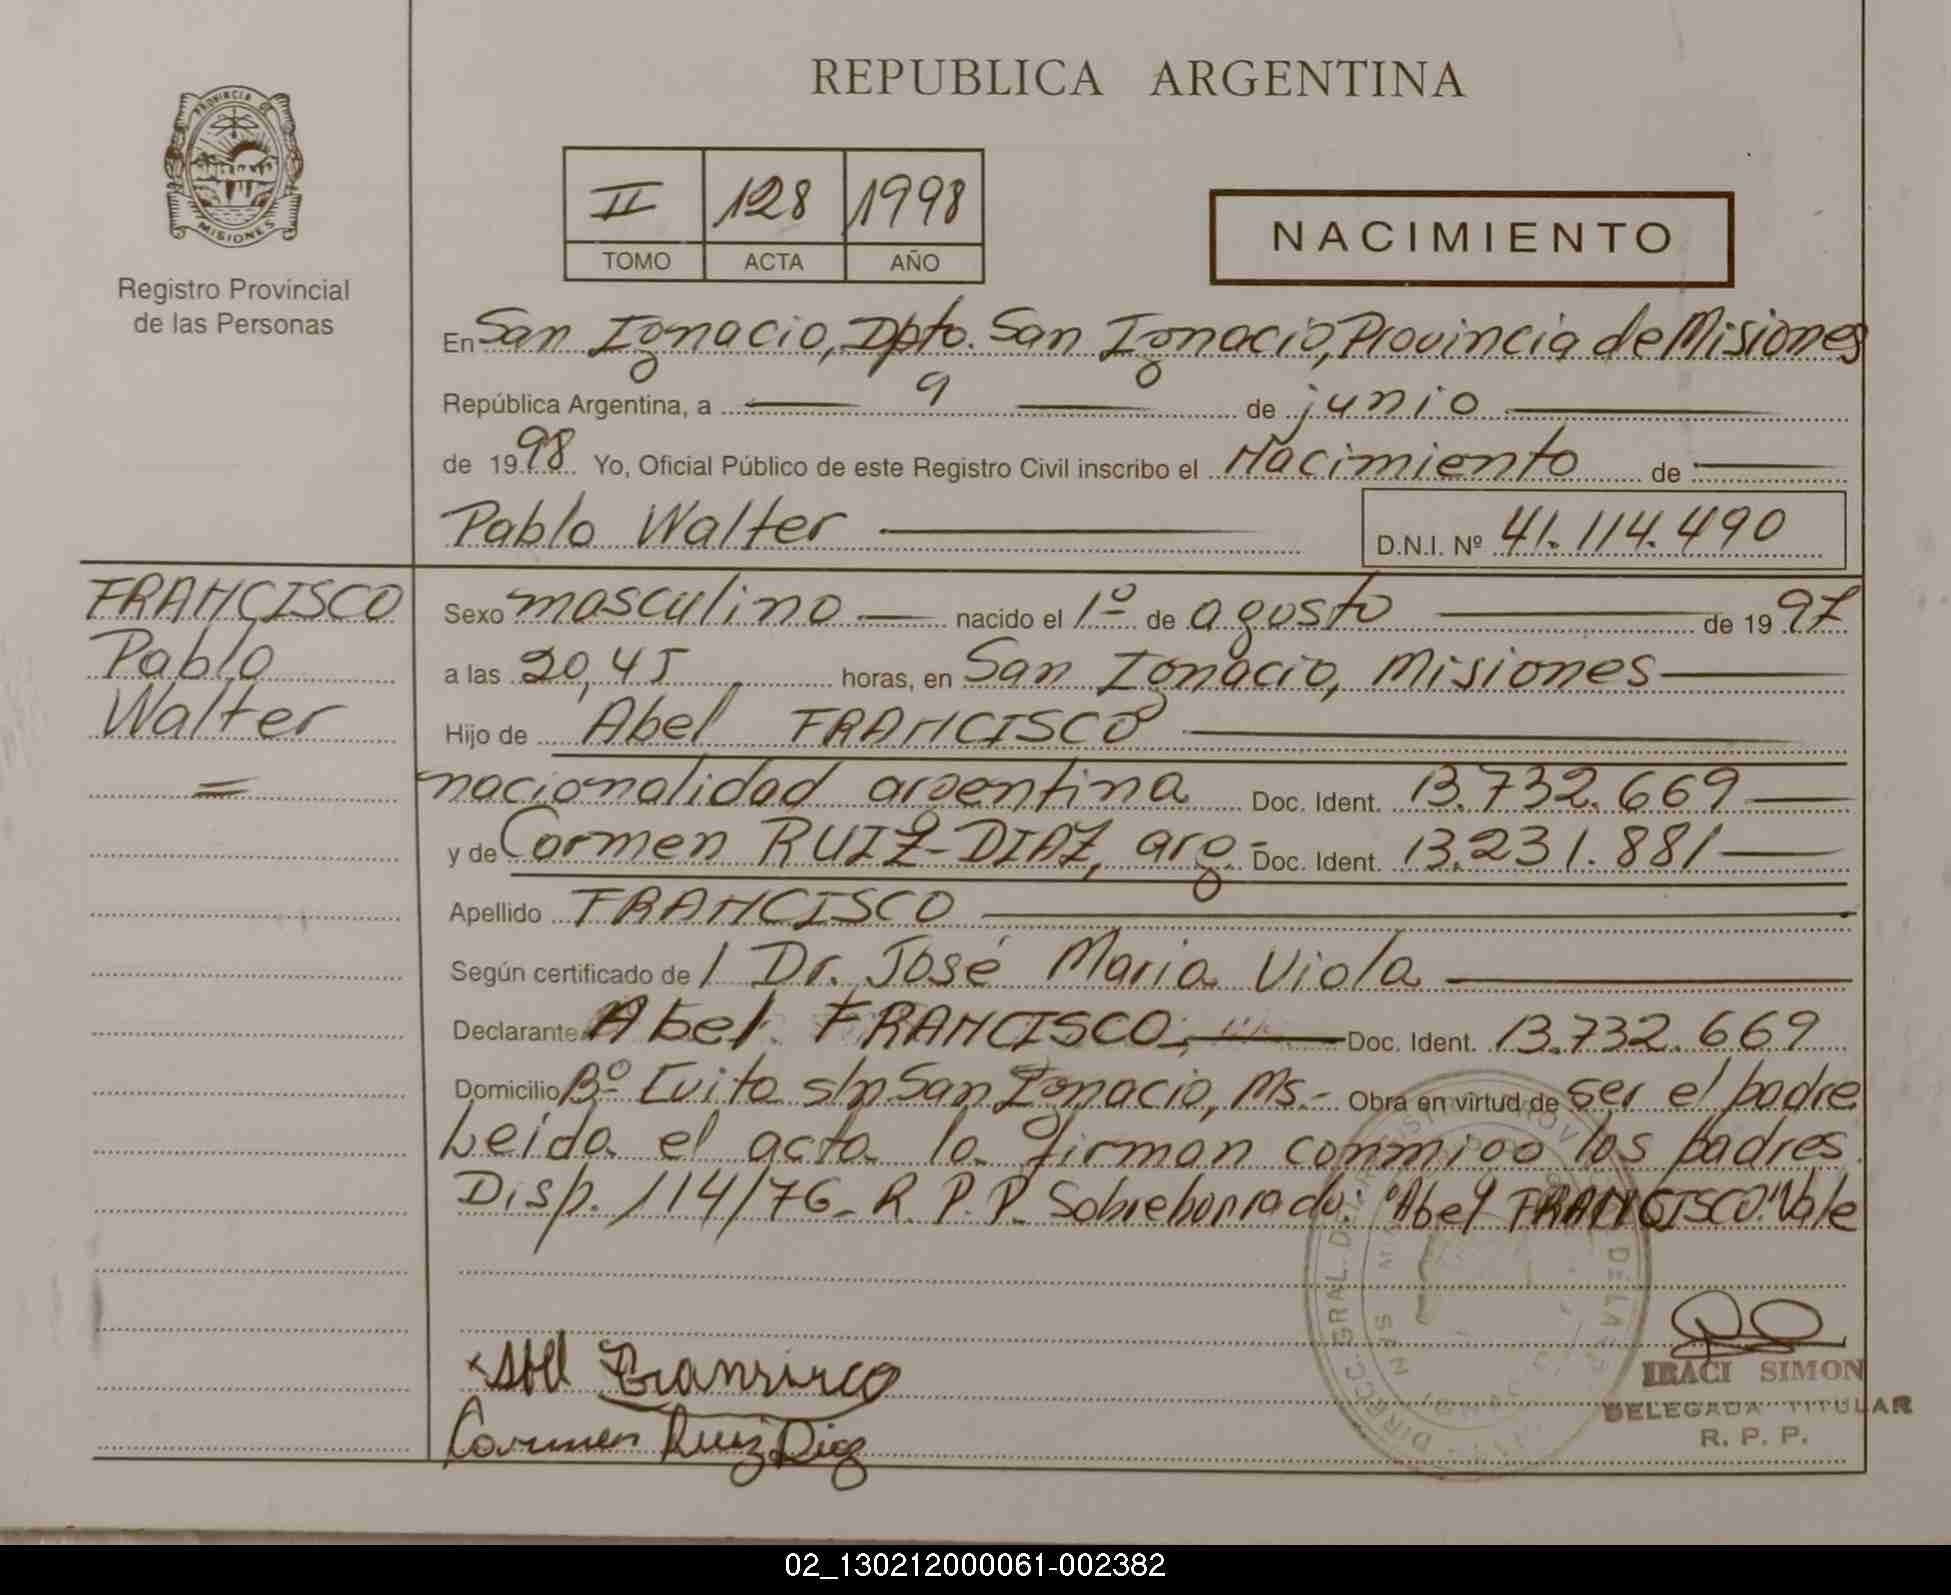 REPUBLICA ARGENTINA
PROVINCIA DE
MISIONES
Registro Provincial
de las Personas
II 128 1998
TOMO ACTA AÑO
NACIMIENTO
En San Ignacio, Dpto. San Ignacio, Provincia de Misiones
República Argentina, a 9 de junio
de 1998 Yo, Oficial Público de este Registro Civil inscribo el Nacimiento de
Pablo Walter D.N.I. Nº 41.114.490
FRANCISCO
Pablo
Walter
=
Sexo masculino nacido el 1º de agosto de 1997
a las 20,45 horas, en San Ignacio, Misiones
Hijo de Abel FRANCISCO
nacionalidad argentina Doc. Ident. 13.732.669
y de Carmen RUIZ-DIAZ, arg.- Doc. Ident. 13.231.881
Apellido FRANCISCO
Según certificado de / Dr. José Maria Viola
Declarante Abel FRANCISCO Doc. Ident. 13.732.669
Domicilio Bº Evito s/n San Ignacio, Ms.- Obra en virtud de ser el padre
Leida el acta la firman conmigo los padres.
Disp. 114/76- R. P. P. Sobreborrado: "Abel FRANCISCO" Vale
Abel Francisco
Carmen Ruiz Diaz
IRACI SIMON
DELEGADA TITULAR
R. P. P.
02_130212000061-002382